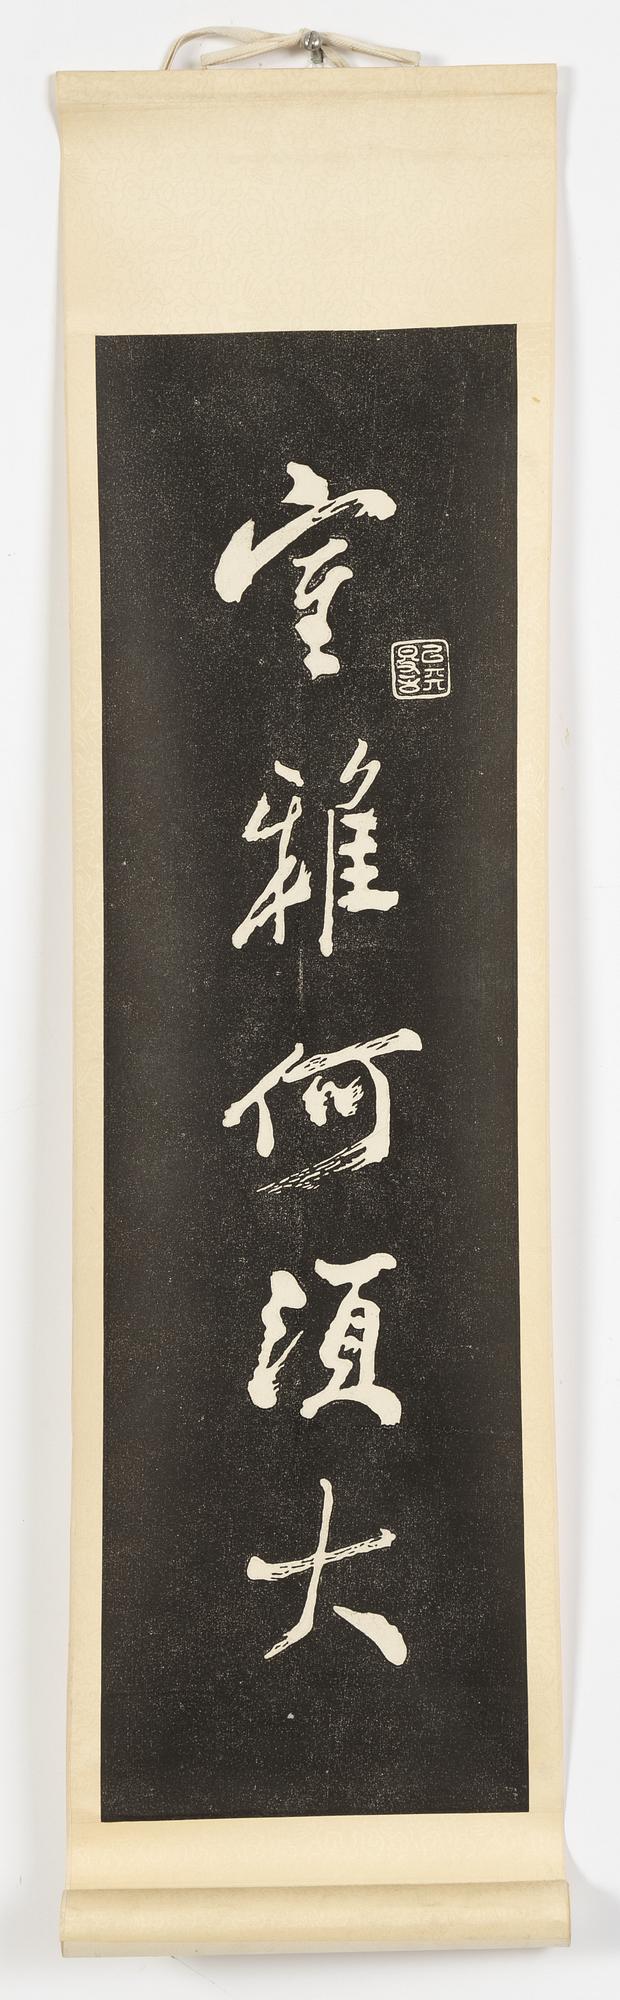 室雅何須大